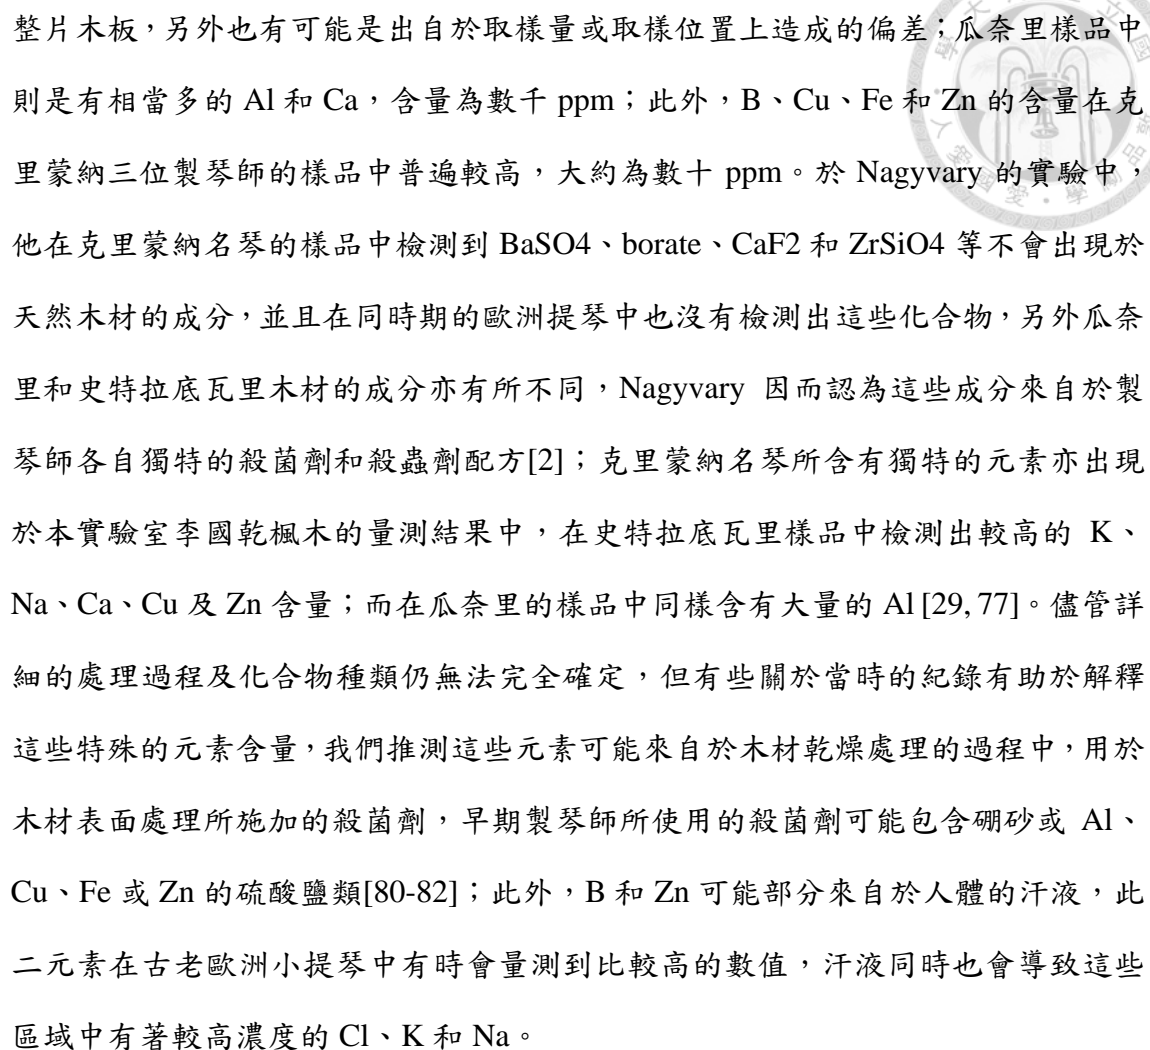 整片木板，另外也有可能是出自於取樣量或取樣位置上造成的偏差；瓜奈里樣品中
則是有相當多的 Al 和 Ca，含量為數千 ppm；此外，B、Cu、Fe 和 Zn 的含量在克
里蒙納三位製琴師的樣品中普遍較高，大約為數十 ppm。於 Nagyvary 的實驗中，
他在克里蒙納名琴的樣品中檢測到 BaSO4、borate、CaF2 和 ZrSiO4 等不會出現於
天然木材的成分，並且在同時期的歐洲提琴中也沒有檢測出這些化合物，另外瓜奈
里和史特拉底瓦里木材的成分亦有所不同，Nagyvary 因而認為這些成分來自於製
琴師各自獨特的殺菌劑和殺蟲劑配方[2]；克里蒙納名琴所含有獨特的元素亦出現
於本實驗室李國乾楓木的量測結果中，在史特拉底瓦里樣品中檢測出較高的 K、
Na、Ca、Cu 及 Zn 含量；而在瓜奈里的樣品中同樣含有大量的 Al [29, 77]。儘管詳
細的處理過程及化合物種類仍無法完全確定，但有些關於當時的紀錄有助於解釋
這些特殊的元素含量，我們推測這些元素可能來自於木材乾燥處理的過程中，用於
木材表面處理所施加的殺菌劑，早期製琴師所使用的殺菌劑可能包含硼砂或 Al、
Cu、Fe 或 Zn 的硫酸鹽類[80-82]；此外，B 和 Zn 可能部分來自於人體的汗液，此
二元素在古老歐洲小提琴中有時會量測到比較高的數值，汗液同時也會導致這些
區域中有著較高濃度的 Cl、K 和 Na。